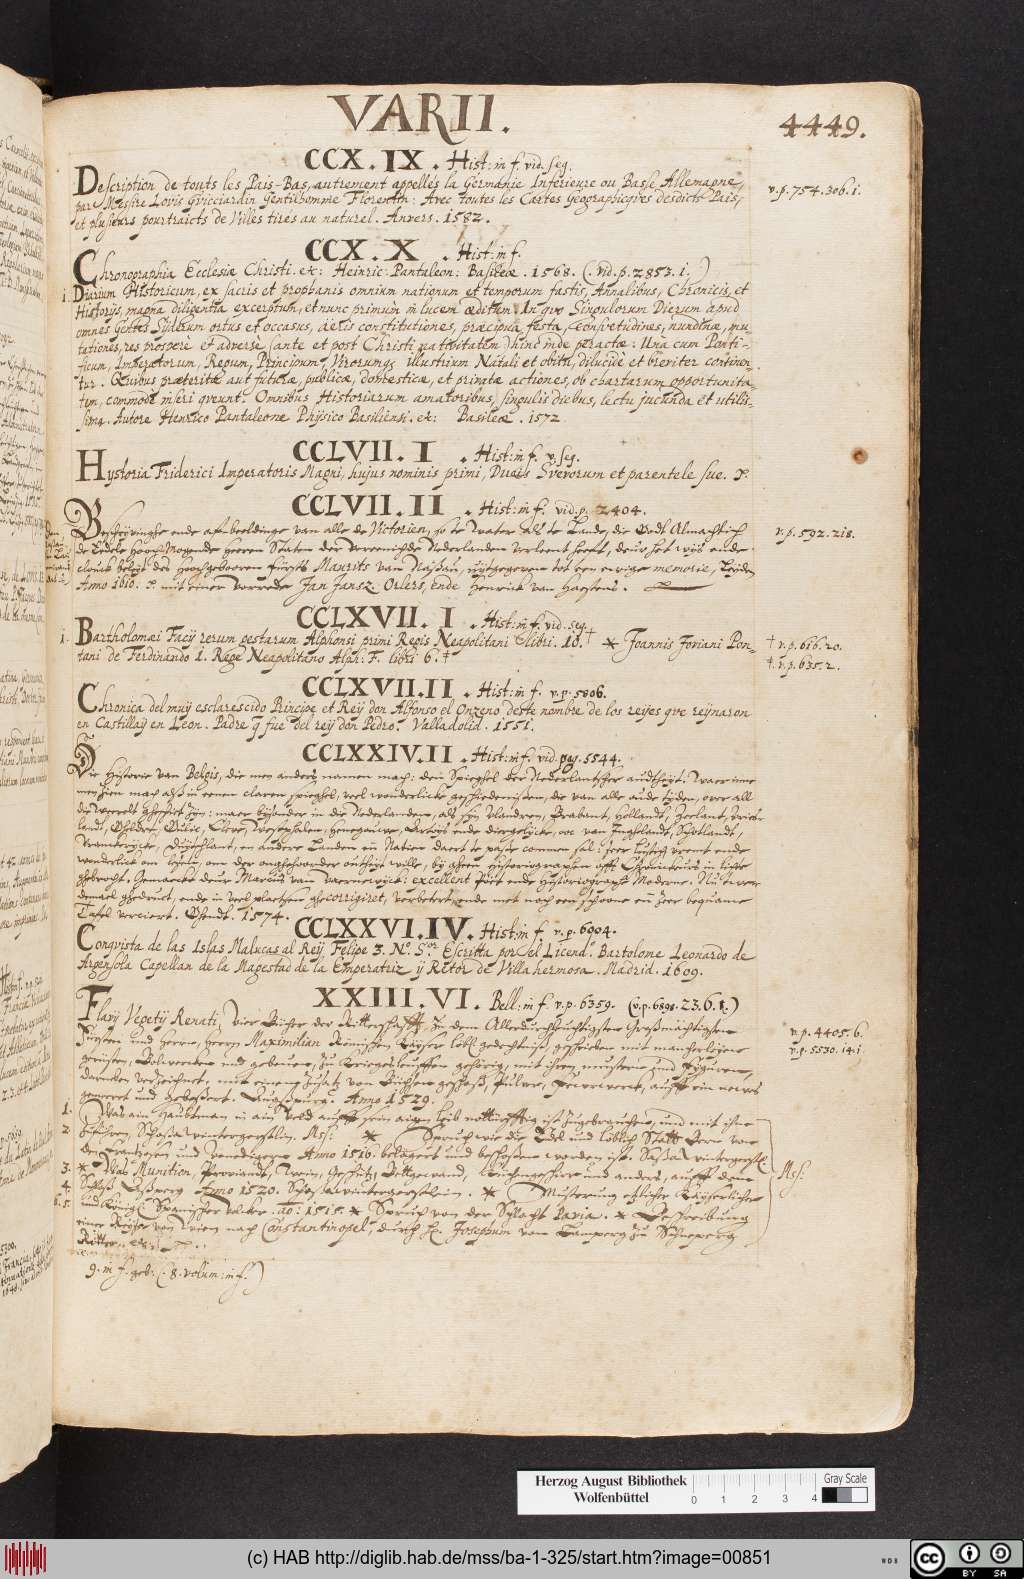 VARII.
4449.
CCX. IX. Hist: in f. vid. seq.
Description de touts les Pais-Bas, autrement appellés la Germanie Inferieure ou Basse Allemagne,
par Messire Lovis Gvicciardin Gentilhomme Florentin: Avec toutes les Cartes Geographicqves desdicts Pais,
et plusieurs pourtraicts de Villes tirés au naturel. Anvers. 1582.
v.p. 754. 306. 1.
CCX. X. Hist: in f.
Chronographia Ecclesiæ Christi. ex: Heinric: Pantaleon: Basileæ. 1568. (. vid. p. 2853. 1.)
1. Diarium Historicum, ex sacris et prophanis omnium nationum et temporum fastis, Annalibus, Chronicis, et
Historijs, magna diligentia excerptum, et nunc primùm in lucem æditum. In quo Singulorum Dierum apud
omnes Gentes Syderum ortus et occasus, aëris constitutiones, præcipua festa, consvetudines, nundinæ, mu-
tationes, res prosperè et adversè (ante et post Christi nativitatem) hinc inde peractæ: Una cum Ponti-
ficum, Imperatorum, Regum, Principum, Virorumq; illustrium Natali et obitu, dilucidè et breviter continen-
tur. Quibus præteritæ aut futuræ, publicæ, domesticæ, et privatæ actiones, ob chartarum opportunita-
tem, commodè inseri qveunt. Omnibus Historiarum amatoribus, singulis diebus, lectu jucunda et utilis-
sima. Autore Henrico Pantaleone Physico Basiliensi. ex: Basileæ. 1572.
CCLVII. I. Hist: in f. v. seq.
Hystoria Friderici Imperatoris Magni, hujus nominis primi, Ducis Svevorum et parentele sue.
CCLVII. II. Hist: in f. vid. p. 2404.
Beschrijvinghe ende af-beeldinge van alle de Victorien, so te Water als te Lande, die Godt Almachtich
de Eedele Hooch Mogende Heeren Staten der Vereenichde Nederlanden verleent heeft, deur het wijs ende
clouck beleyt des Hoochgebooren Fürsts Maurits van Nassau, uijtgegeven tot een ewige memorie, Leyden
Anno 1610. mit einer Vorrede Jan Jansz. Orlers, ende Henrick van Haestens.
v.p. 592. 218.
CCLXVII. I. Hist: in f. vid. seq.
1. Bartholomæi Facij rerum gestarum Alphonsi primi Regis Neapolitani libri. 10. † * Joannis Joviani Pon-
tani de Ferdinando 1. Rege Neapolitano Alph: F. libri 6. ‡
† v.p. 616. 20.
‡ v.p. 635. 2.
CCLXVII. II. Hist: in f. v.p. 5806.
Chronica del muy esclarescido Principe et Rey don Alfonso el Onzeno deste nombre de los reyes qve reynaron
en Castilla y en Leon. Padre q fue del rey don Pedro. Valladolid. 1551.
CCLXXIV. II. Hist: in f. vid. pag. 5544.
Die Historie van Belgis, die men anders namen mach: den Spieghel der Nederlantscher audtheyt. Waer inne
men zien mach als in eenen claren spieghel, veel wonderlicke gheschiedenissen, die van alle aude tyden, over all
die weereldt gheschiet zyn: maer bysonder in die Nederlanden, als in Vlandren, Brabant, Hollandt, Zeelant, Vries-
landt, Gheldre, Gulic, Cleve, Westphalen, Henegauwe, Artoys ende diergelijcke, oec van Inghelandt, Schotlandt,
Vranckrijcke, Duytschlant, en andere Landen en Natien daert te passe commen sal:
ghebrocht. Gemaeckt deur Marcus van Vaernewijck: excellent Poët ende Historiograph Moderne.
demael ghedruct, ende in veel plaetsen ghecorrigiret, verbetert, ende met noch een schoone en zeer bequame
Tafel verciert. Ghendt. 1574.
CCLXXVI. IV. Hist: in f. v.p. 6904.
Conqvista de las Islas Malucas al Rey Felipe 3. Nº. Sºr. Escritta por el Licendº. Bartolome Leonardo de
Argensola Capellan de la Magestad de la Emperatriz ÿ Retor de Villahermosa. Madrid. 1609.
XXIII. VI. Bell: in f. v.p. 6359. (v.p. 6898. 23. 6. 1.)
Flavij Vegetij Renati, vier Bücher der Ritterschafft, zu dem Allerdurchleuchtigsten Großmächtigsten
Fürsten und Herrn, Herrn Maximilian Römischen Kayser lobl. gedechtnuß, geschrieben mit mancherleyen
gerüsten, Bolwercken und gebeuen, zu Kriegsleufften gehörig, mit ihren mustern und Figuren,
darneben verzeichnet, mit einem Zusatz von Büchsen geschoß, Pulver, Fewrwerck, auff ein newes
gemeeret und gebessert. Augspurg. Anno 1529.
v.p. 4405. 6.
v.p. 5530. 14.1.
1. Was ein Haubtman in ein Veld auff sein aigen Leib notturfftig ist zugebrauchen, und mit ihm
2. zuführen, Mss: * Spruch wie die Edel und löblich Statt Bern von
den Frantzosen und Venedigern Anno 1516. belägert und beschossen worden ist.
3. * Was Munition, Proviandt, Wein, Geschütz, Bettgewand, Küchengeschirr und anders, auff dem
4. Schloß Anno 1520. * Musterung etzlicher Käyserlicher
5. und Königl. Spanischer Völcker. ao: 1515. * Spruch von der Schlacht Pavia. * Beschreibung
6. einer Reyse von Wien nach Constantinopel, durch H. Josephum von Lamperg zu Schneperg
Ritter.
Mss:
9. in f. geb: (. 8. volum: in f.)
Herzog August Bibliothek
Wolfenbüttel
0 1 2 3 4
Gray Scale
(c) HAB http://diglib.hab.de/mss/ba-1-325/start.htm?image=00851
WDB
cc
BY SA